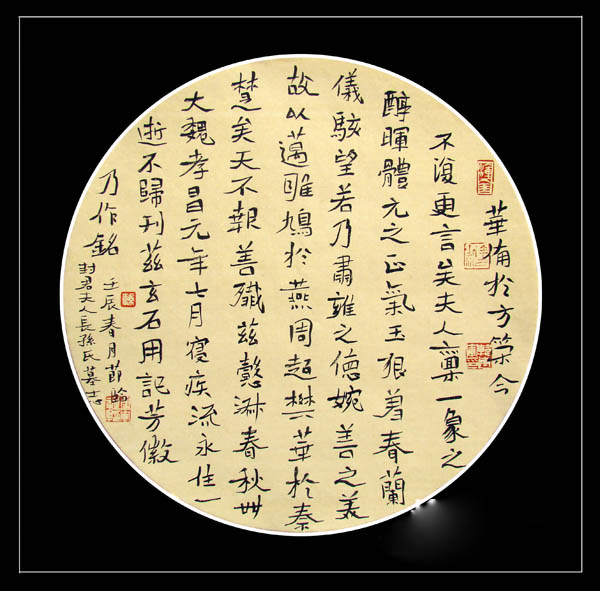 華俻於方策今
不復更言矣夫人稟一象之
醇暉體元之正氣玉貌著春蘭
儀駭望若乃肅雝之德婉善之美
故以邁雎鳩於燕周超樊華於秦
楚矣天不報善殲茲懿淑春秋卌
大魏孝昌元年七月寢疾流永往一
逝不歸刊茲玄石用記芳徽
乃作銘
壬辰春月節臨
封君夫人長孫氏墓志